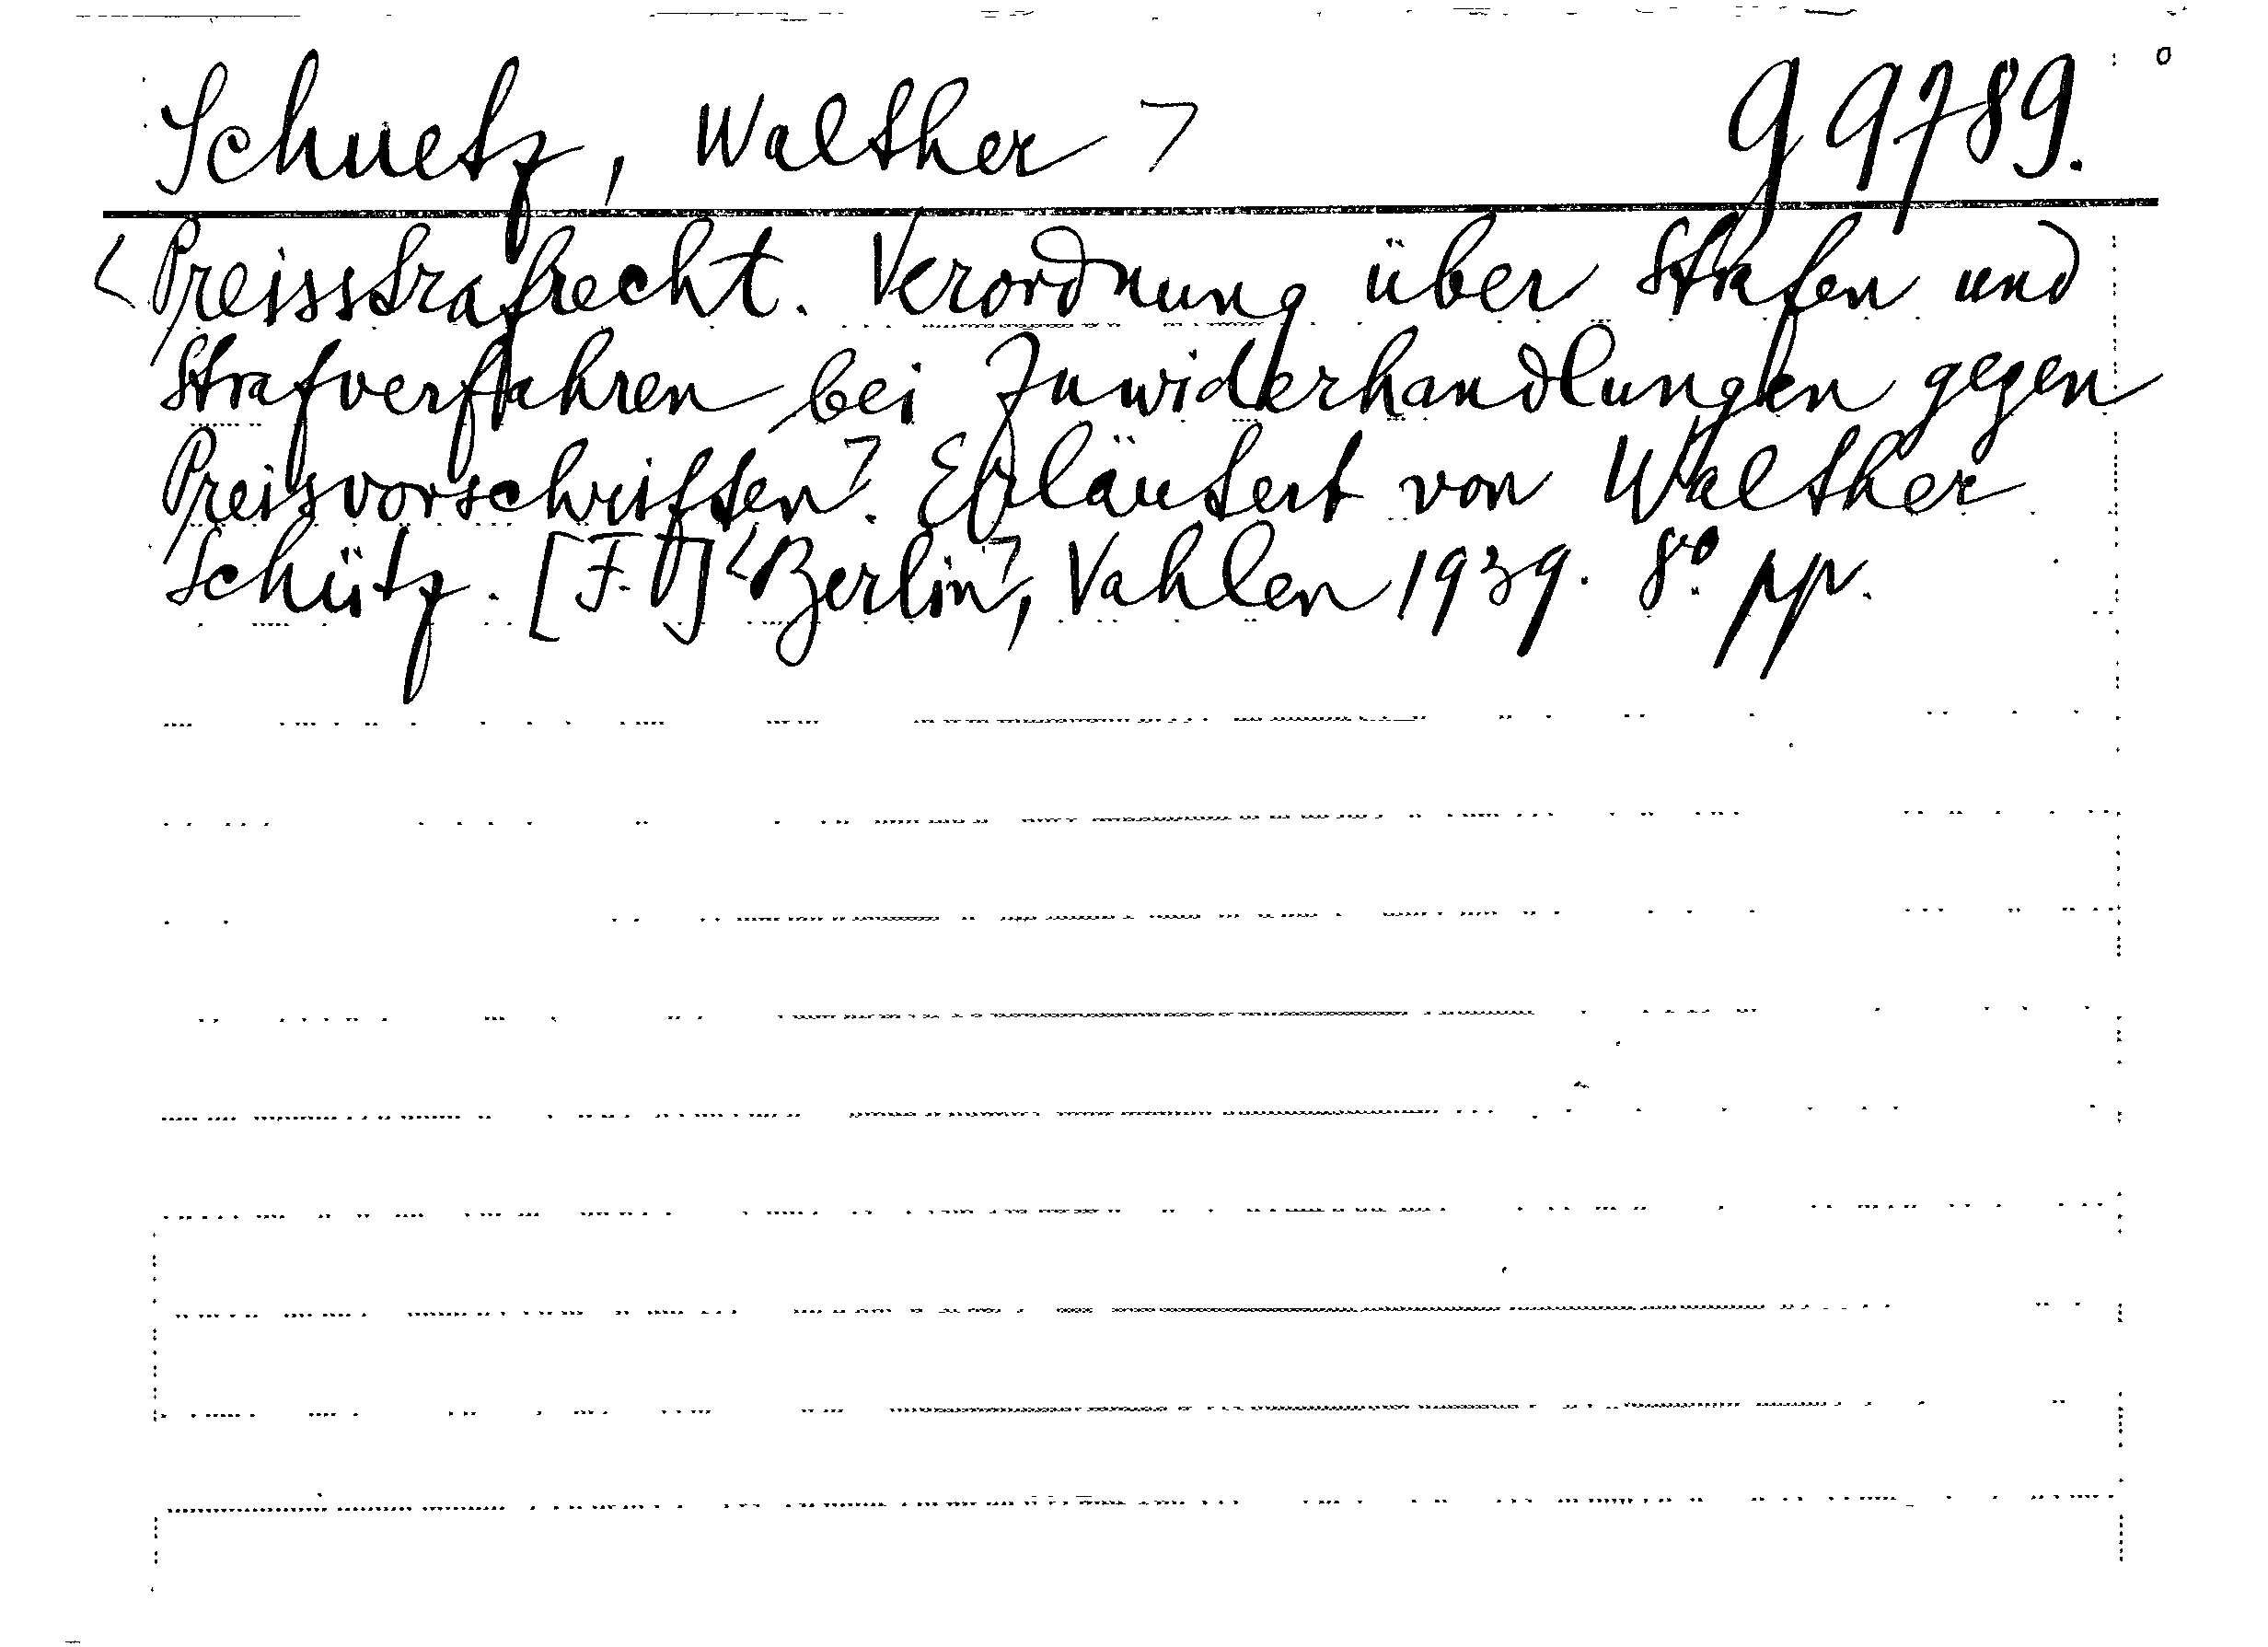 Schuetz, Walther > g 9789.
<Preisstrafrecht. Verordnung über Strafen und
Strafverfahren bei Zuwiderhandlungen gegen
Preisvorschriften>. Erläutert von Walther
Schütz. [F. T] <Berlin>, Vahlen 1939. 8° pp.